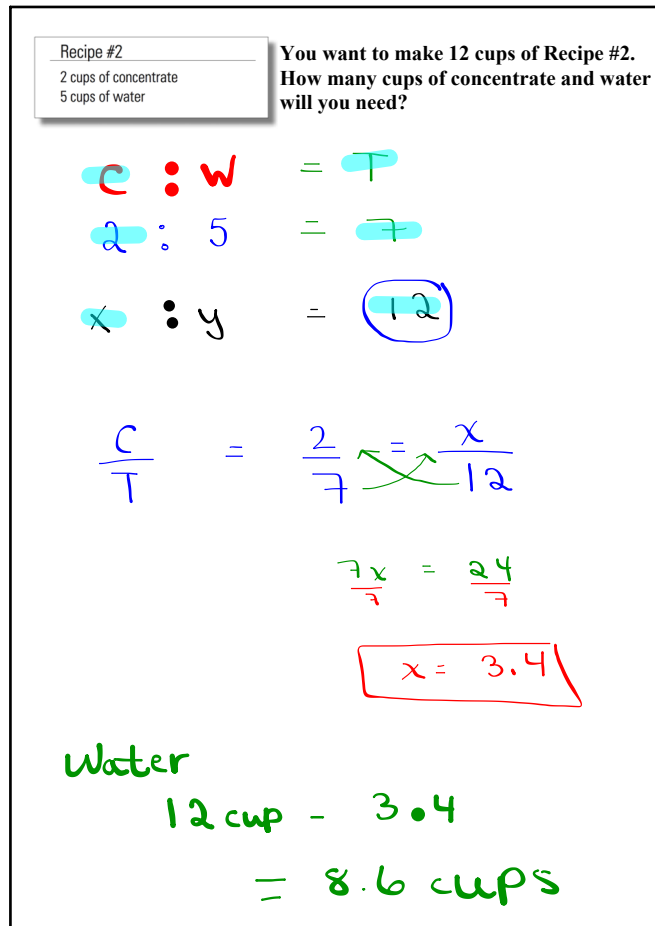 Recipe #2
2 cups of concentrate
5 cups of water
You want to make 12 cups of Recipe #2.
How many cups of concentrate and water
will you need?
C : W = T
2 : 5 = 7
x : y = 12
C/T = 2/7 = x/12
7x/7 = 24/7
x = 3.4
Water
12 cup - 3.4
= 8.6 cups